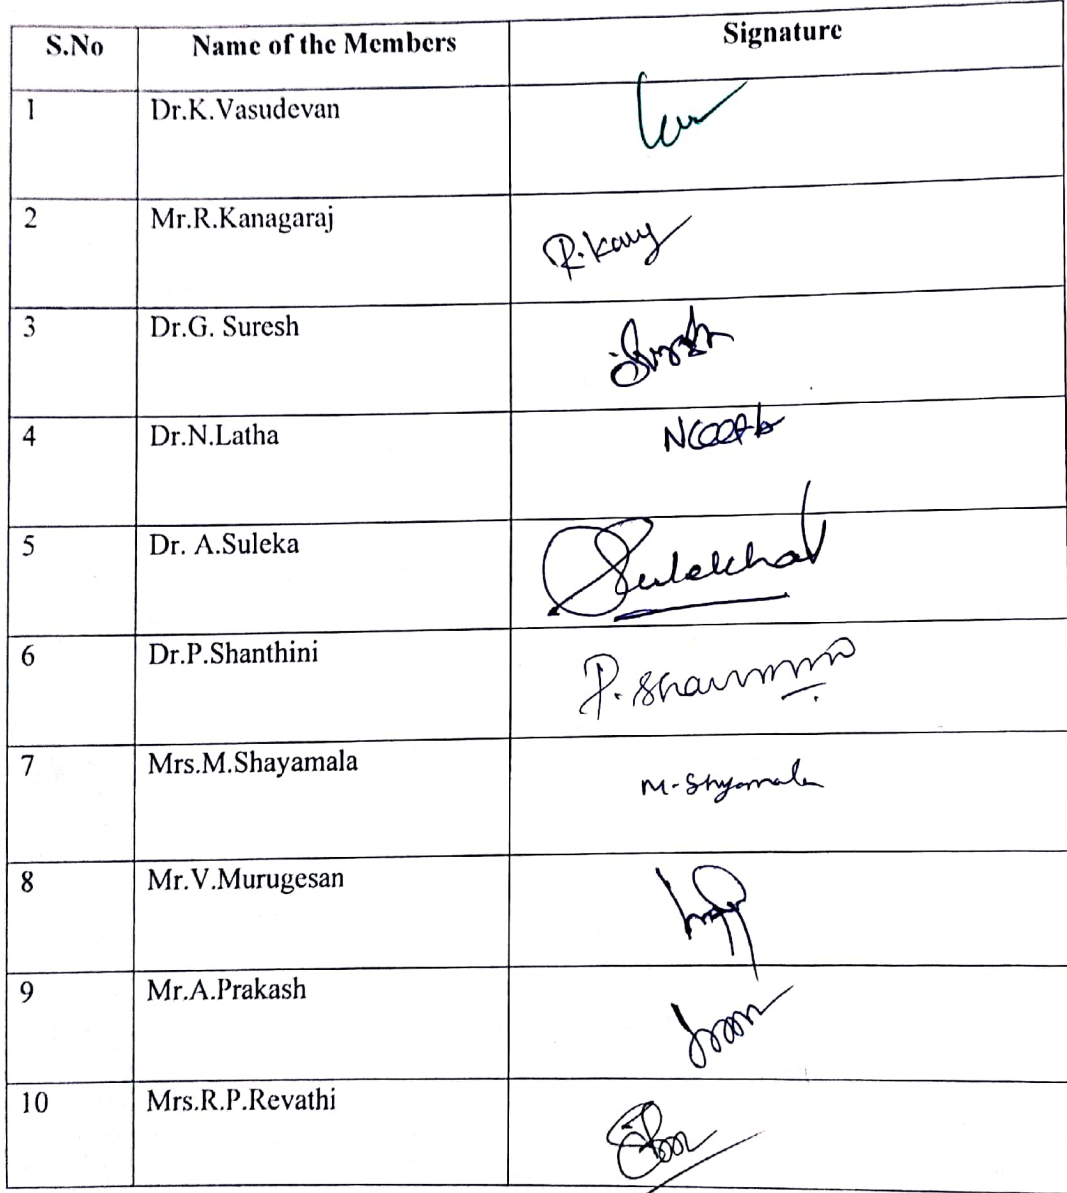 S.No Name of the Members Signature
1 Dr.K.Vasudevan
2 Mr.R.Kanagaraj
3 Dr.G. Suresh Suresh
4 Dr.N.Latha
5 Dr. A.Suleka Sulekha
6 Dr.P.Shanthini
7 Mrs.M.Shayamala M-Shyamala
8 Mr.V.Murugesan
9 Mr.A.Prakash
10 Mrs.R.P.Revathi